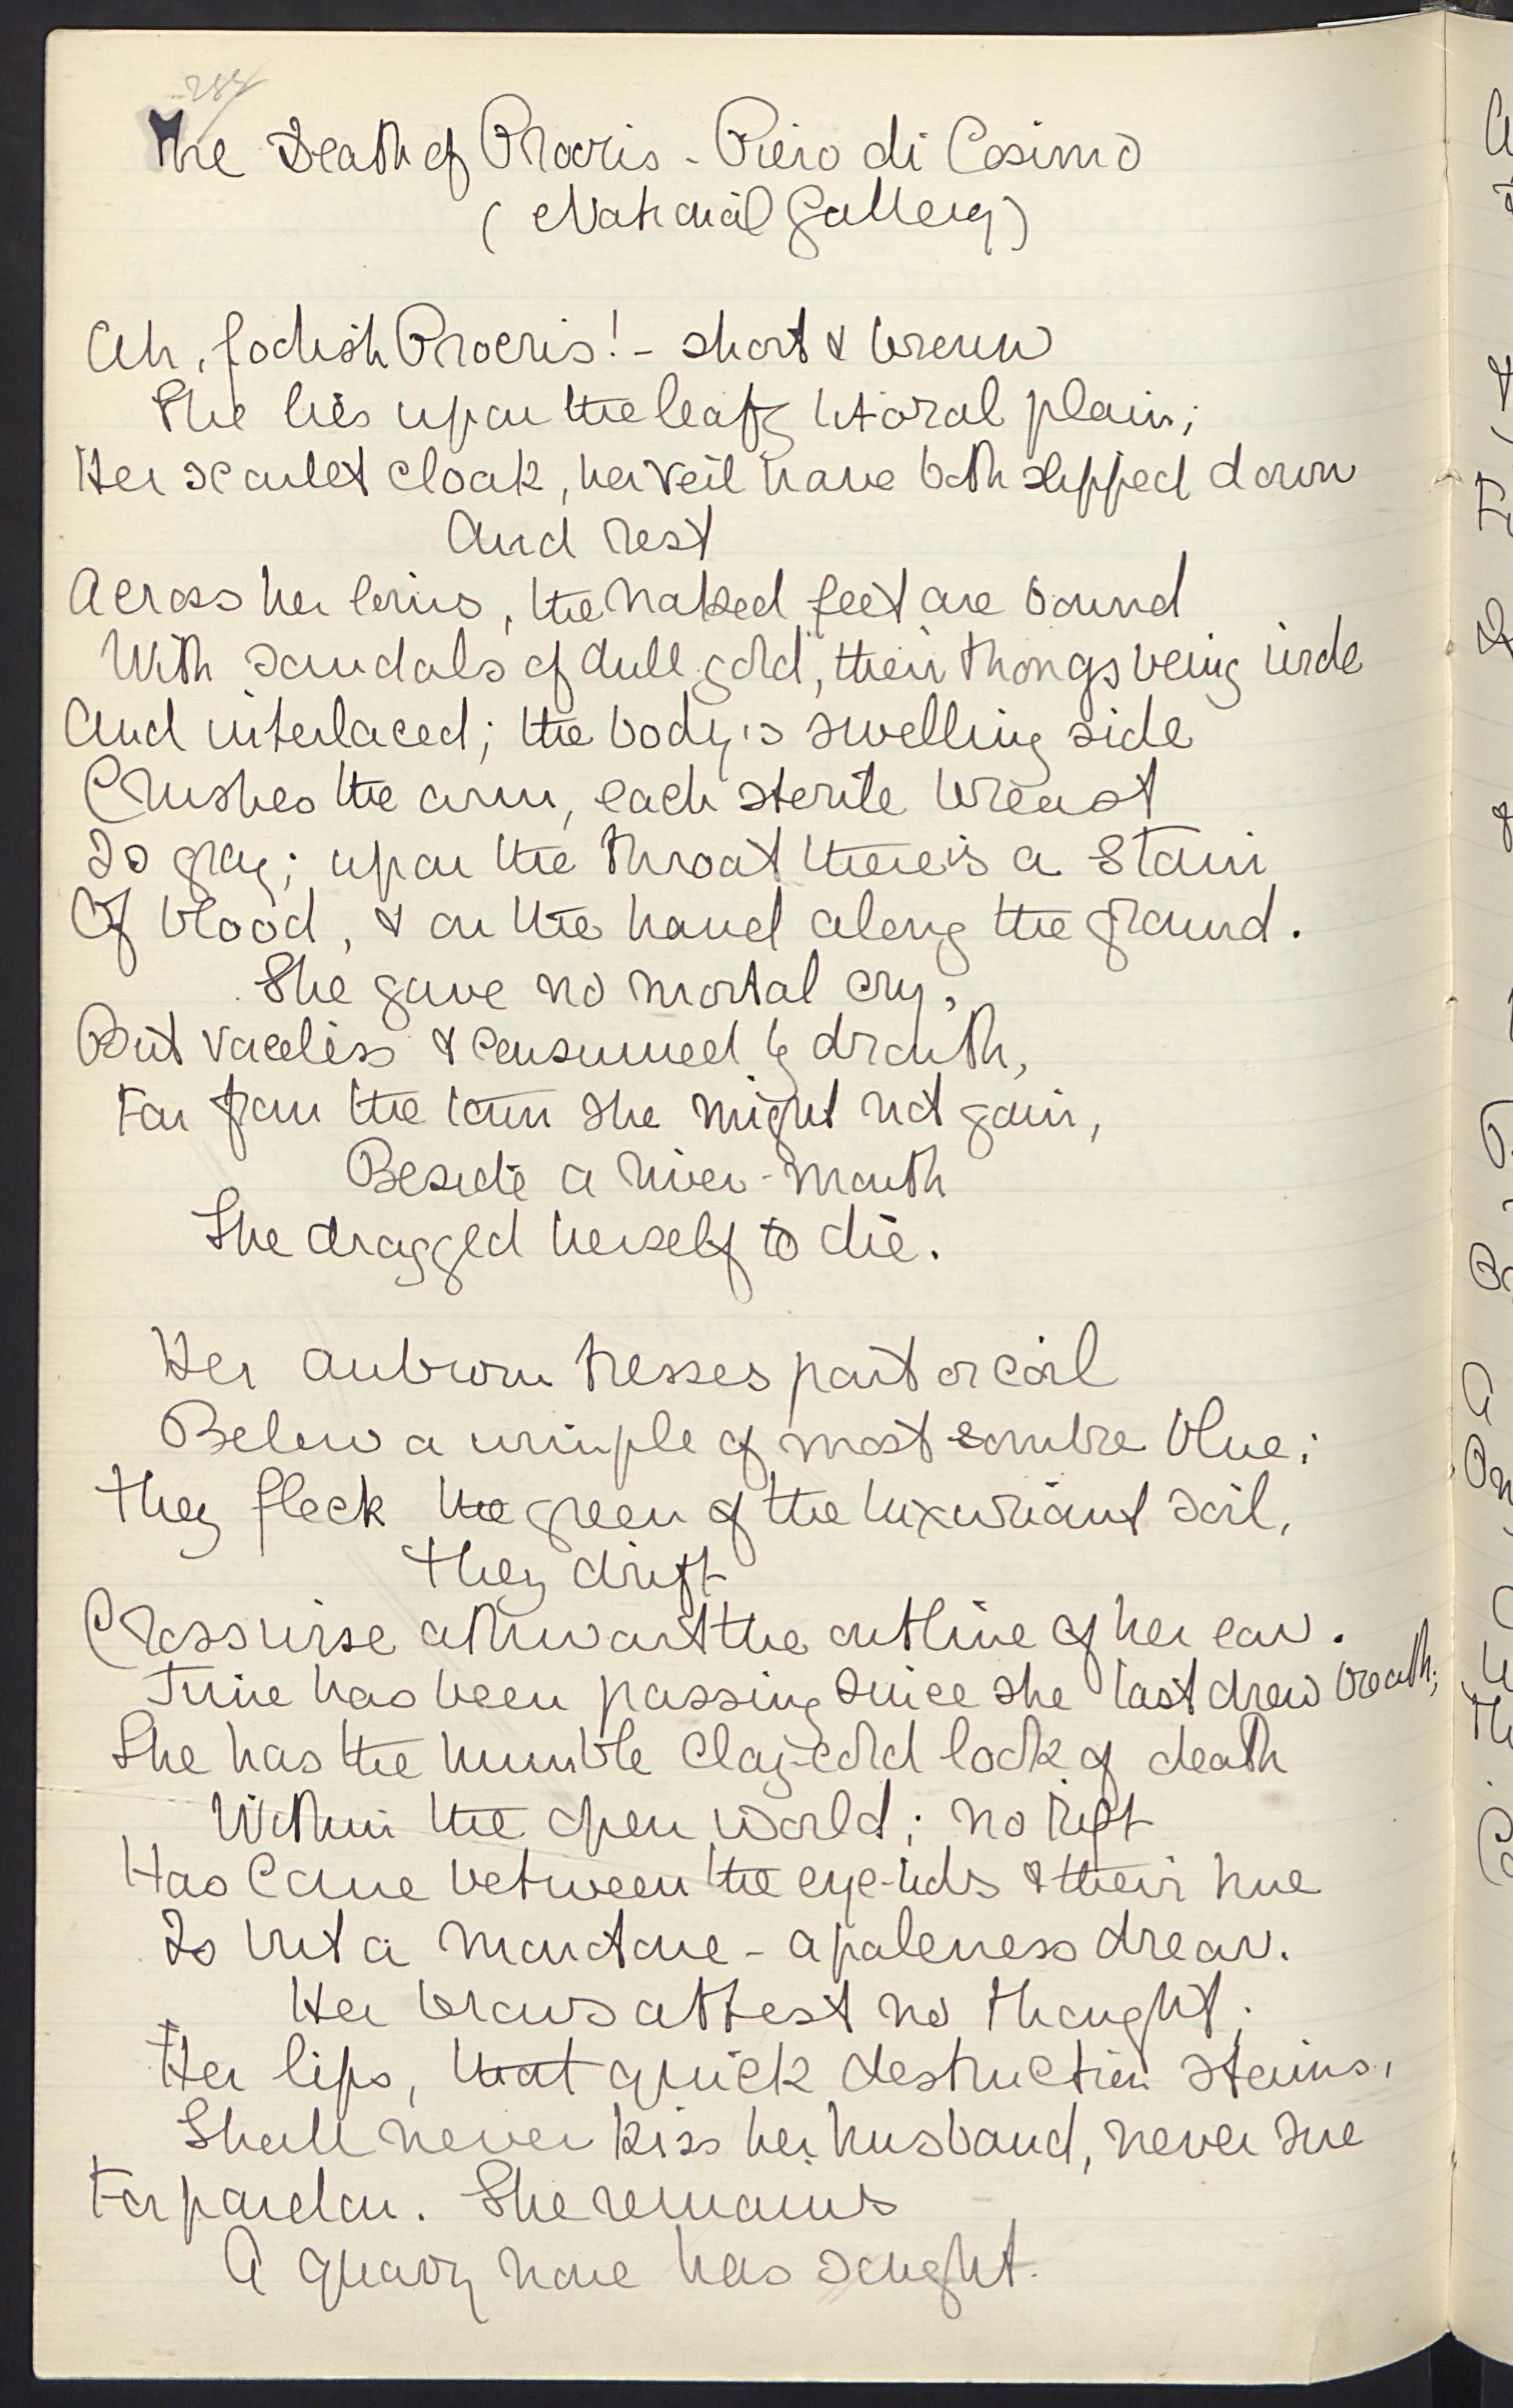 The Death of Procris - Piero di Cosimo
(National Gallery)
Ah, foolish Procris! - short & brown
She lies upon the leafy, litoral plain;
Her scarlet cloak, her veil have both slipped down
And rest
Across her loins, the naked feet are bound
With sandals of dull gold, their thongs being wide
And interlaced; the body's swelling side
Crushes the arm, each sterile breast
Is gray; upon the throat there is a stain
Of blood, & on the hand along the ground.
She gave no mortal cry,
But voiceless & consumed by drouth,
Far from the town she might not gain,
Beside a river-mouth
She dragged herself to die.
Her auburn tresses part or coil
Below a wimple of most sombre blue;
They fleck the green of the luxuriant soil,
They drift
Crosswise athwart the outline of her ear.
Time has been passing since she last drew breath;
She has the humble clay-cold look of death
Within the open world; no rift
Has come between the eye-lids & their hue
Is but a monotone - a paleness drear.
Her brows attest no thought;
Her lips, that quick destruction stains,
Shall never kiss her husband, never sue
For pardon. She remains
A quarry none has sought.